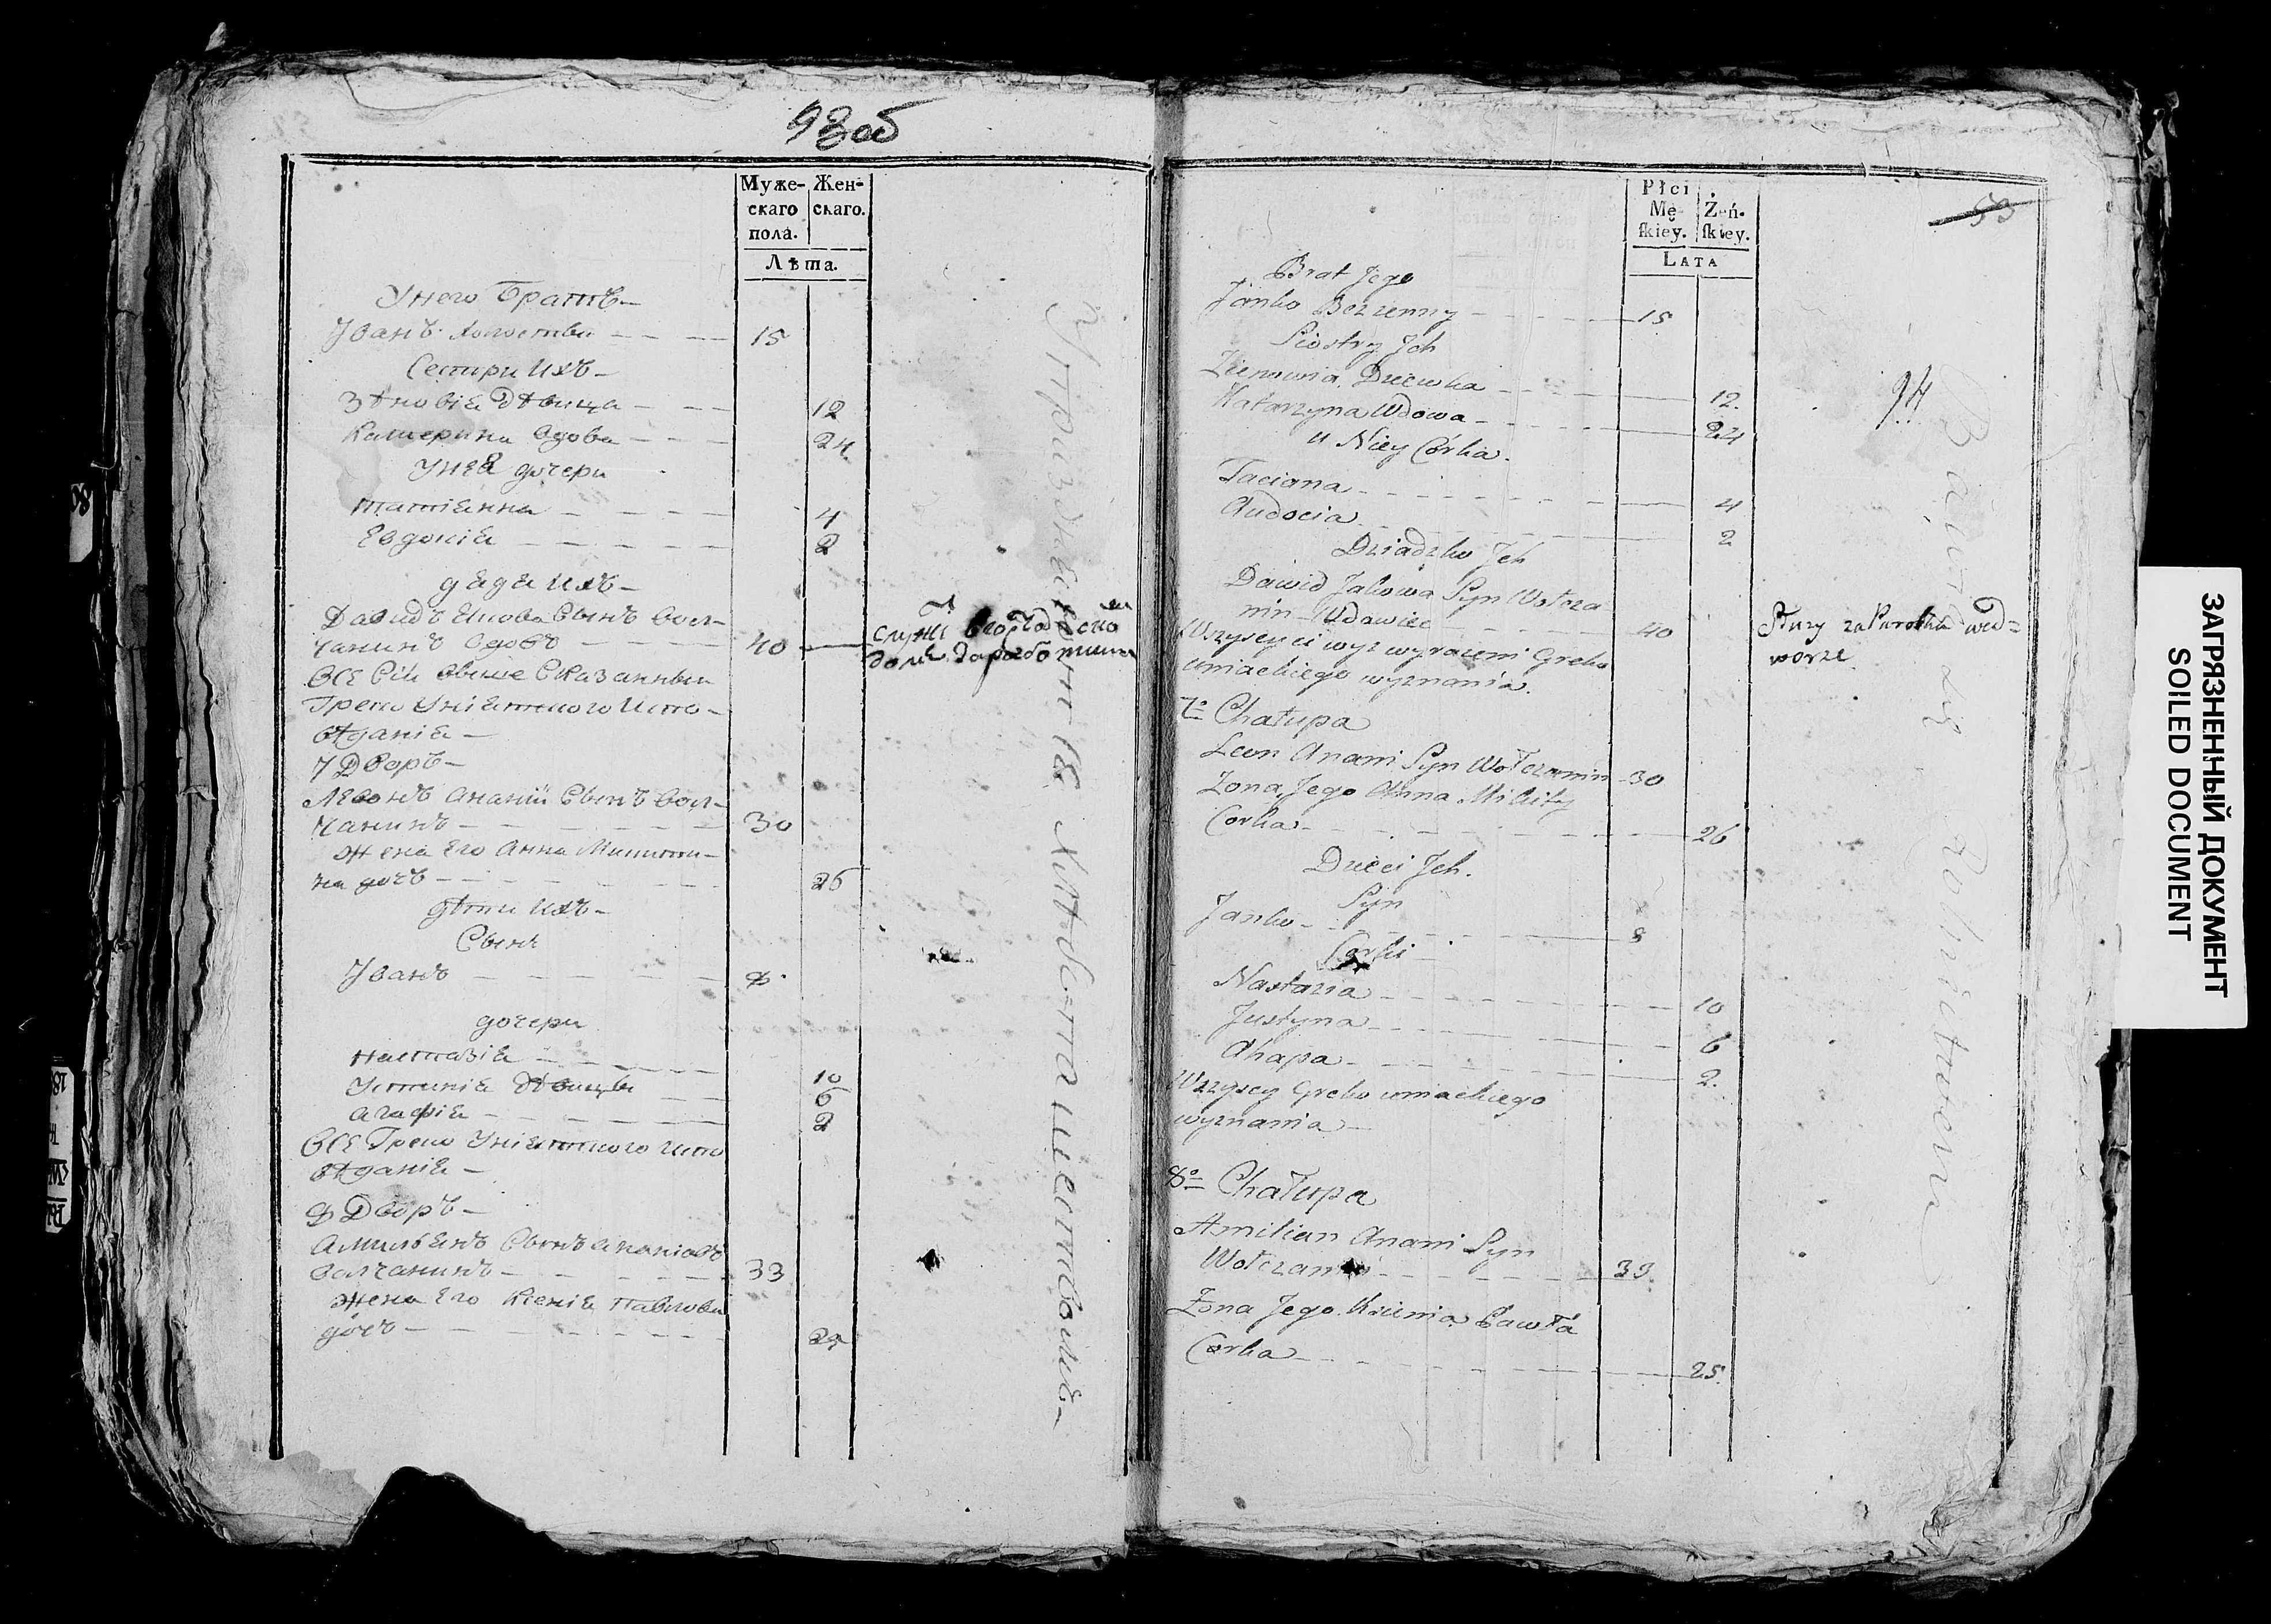 93об
Муже-
скаго
пола.
Жен-
скаго.
Лѣта.
Унего Братъ-
Иванъ Холостый 15
Сестри ихъ-
Зѣновіа дѣвица 12
Катерина вдова 24
Унея дочери
Татіанна 4
Евдокіа 2
дядя ихъ-
Давидъ Якова Сынъ Вол-
чанинъ вдовъ 40
служи
Всѣ Сіи выше Сказанныи
Греко Уніятского Испо-
вѣданія-
7 Дворъ-
Левонъ Ананіи Сынъ Вол-
чанинъ 30
Жена Его Анна Микити-
на дочъ 26
дѣти ихъ-
Сынъ
Иванъ 8
дочери
Настазіа 10
Устиніа дѣвицы 6
Агафіа 2
Всѣ Греко Уніятского Испо
вѣданія-
8 Дворъ-
Амильянъ Сынъ Ананіовъ
Волчанинъ- 33
Жена Его Ксеніа Павлова
дочъ- 25
Упражняются хлѣбопашествомъ-
Płci
Mę
skiey.
Żeń-
skiey.
LATA
53
94
Brat Jego
Janko Bezzenny 15
Siostry Jch
Zienowia Dziewka 12.
Katarzyna Wdowa 24
u Niey Córka.
Taciana 4
Audocia 2
Dziadzko Jch
Dawid Jakowa Syn Wołcza
nin Wdawiec 40
Służy za Parobka wed=
worze
Wszyscy ci wyz wyrażeni Greko
uniackiego wyznania.
7o Chałupa
Leon Anani Syn Wołczanin 30
Zona Jego Anna Mikity
Corka 26
Dzieci Jch.
Syn
Janko 8
Corki
Nastazia 10
Justyna 6
Ahapa 2.
Wszyscy Greko uniackiego
wyznania
8o Chałupa
Amilian Anani Syn
Wołczanin 33
Zona Jego Ksienia Pawła
Corka 25.
Bawią się Rolnictwem
ЗАГРЯЗНЕННЫЙ ДОКУМЕНТ
SOILED DOCUMENT